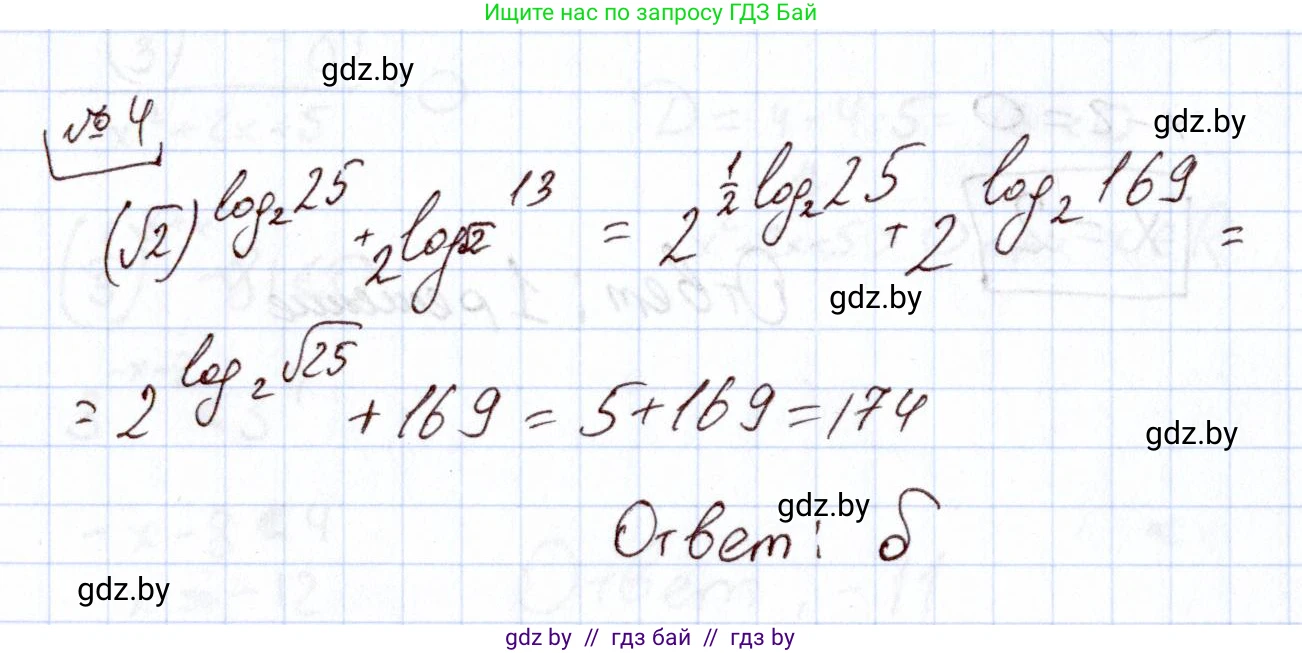 Ищите нас по запросу ГДЗ Бай
gdz.by
№ 4
gdz.by
(√2)^log₂25 + 2^log_√2 13 = 2^½log₂25 + 2^log₂169 =
gdz.by
= 2^log₂√25 + 169 = 5 + 169 = 174
gdz.by
gdz.by
Ответ: б
gdz.by
gdz by // гдз бай // гдз by